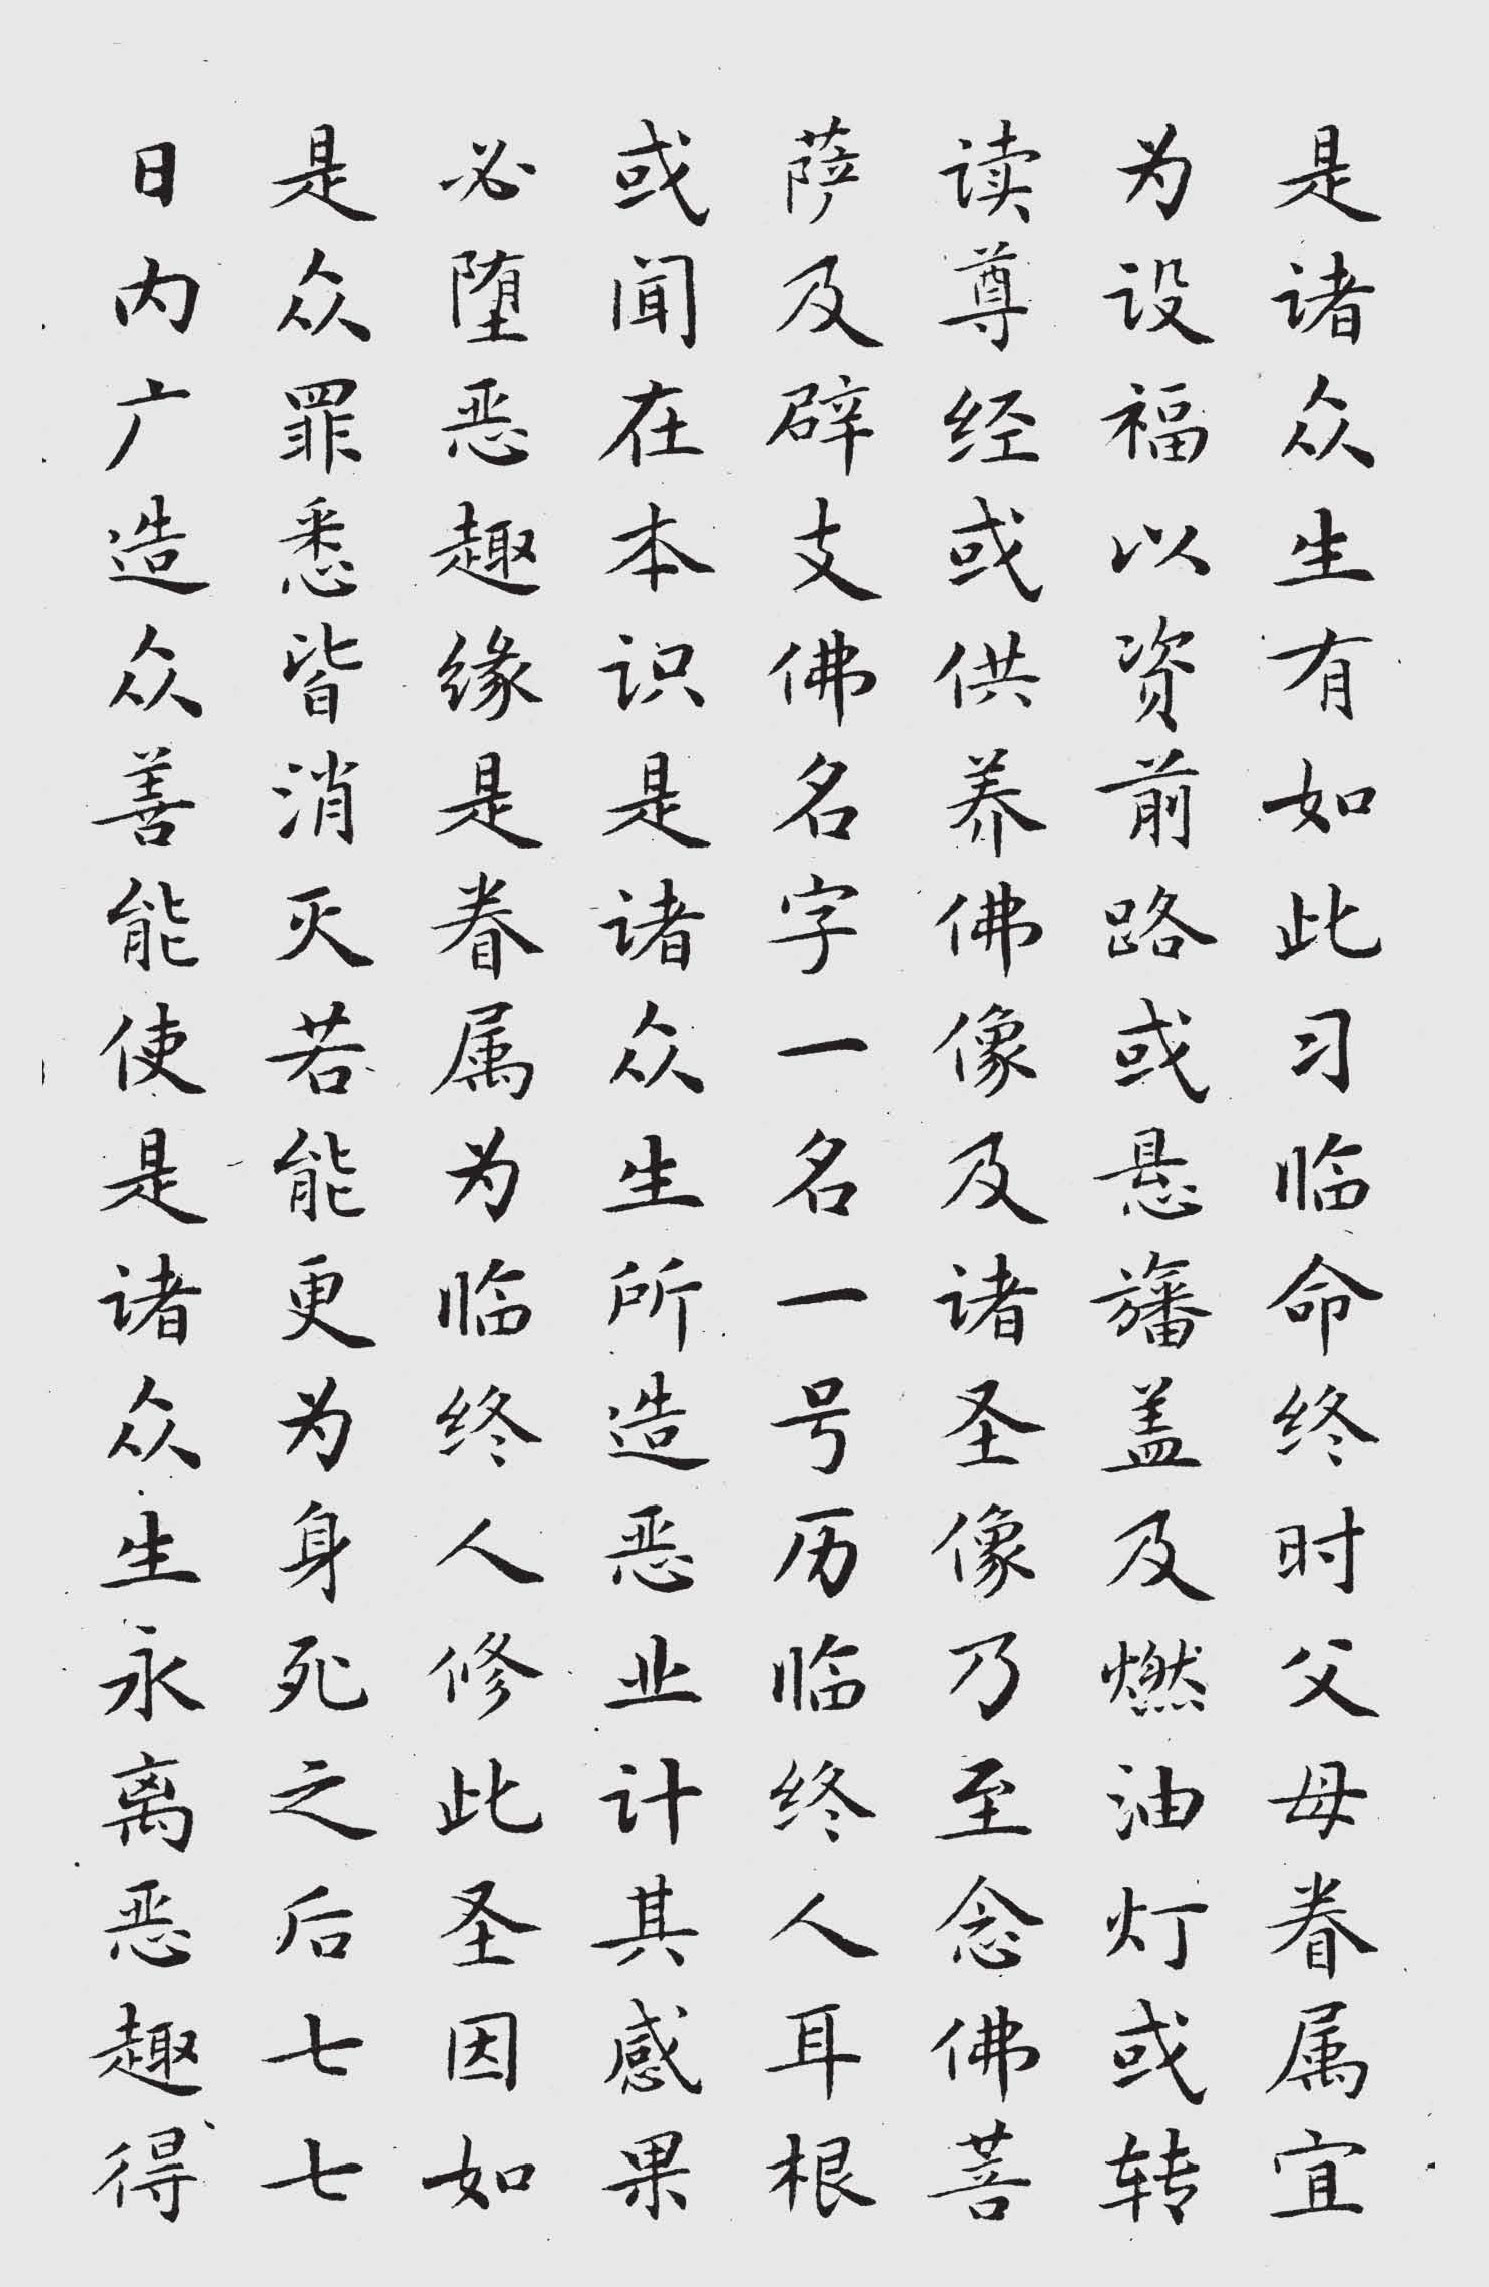 是诸众生有如此习临命终时父母眷属宜
为设福以资前路或悬旛盖及燃油灯或转
读尊经或供养佛像及诸圣像乃至念佛菩
萨及辟支佛名字一名一号历临终人耳根
或闻在本识是诸众生所造恶业计其感果
必堕恶趣缘是眷属为临终人修此圣因如
是众罪悉皆消灭若能更为身死之后七七
日内广造众善能使是诸众生永离恶趣得